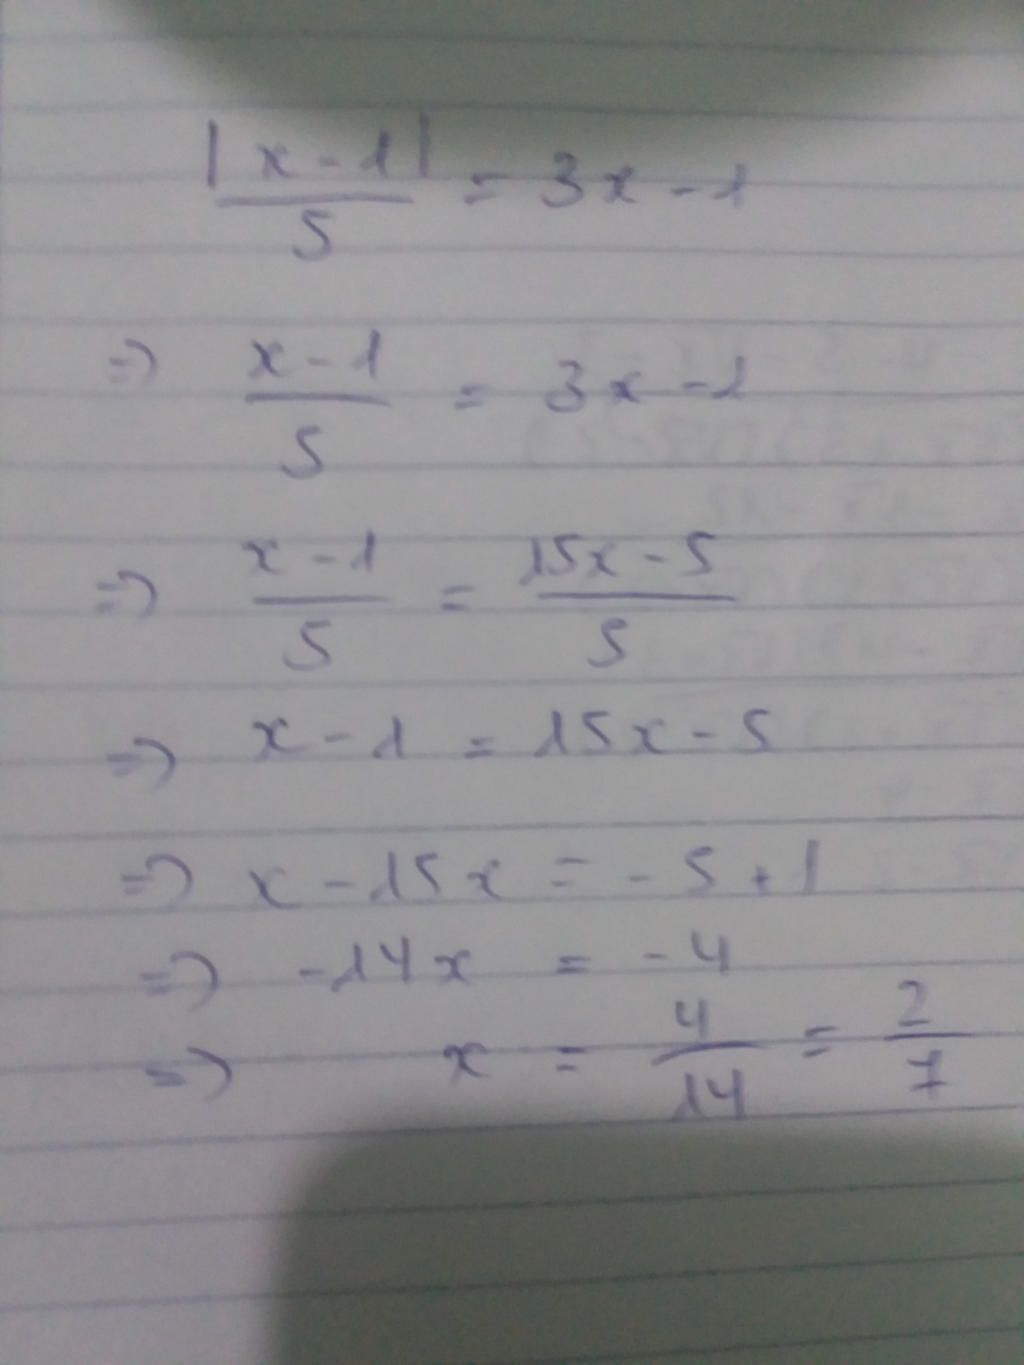 |x-1|/5 = 3x-1
=> x-1/5 = 3x-1
=> x-1/5 = 15x-5/5
=> x-1 = 15x-5
=> x-15x = -5+1
=> -14x = -4
=> x = 4/14 = 2/7